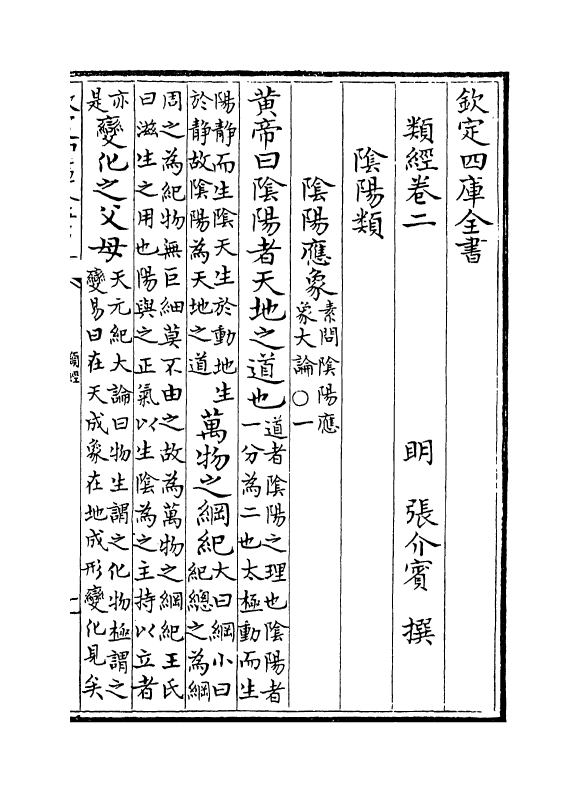 欽定四庫全書
類經卷二 明 張介賓 撰
陰陽類
陰陽應象素問陰陽應象大論○一
黄帝曰陰陽者天地之道也道者陰陽之理也陰陽者一分為二也太極動而生
陽静而生陰天生於動地生於静故陰陽為天地之道萬物之綱紀大曰綱小曰紀總之為綱
周之為紀物無巨細莫不由之故為萬物之綱紀王氏
曰滋生之用也陽與之正氣以生陰為之主持以立者
亦是變化之父母天元紀大論曰物生謂之化物極謂之變易曰在天成象在地成形變化見矣
類經